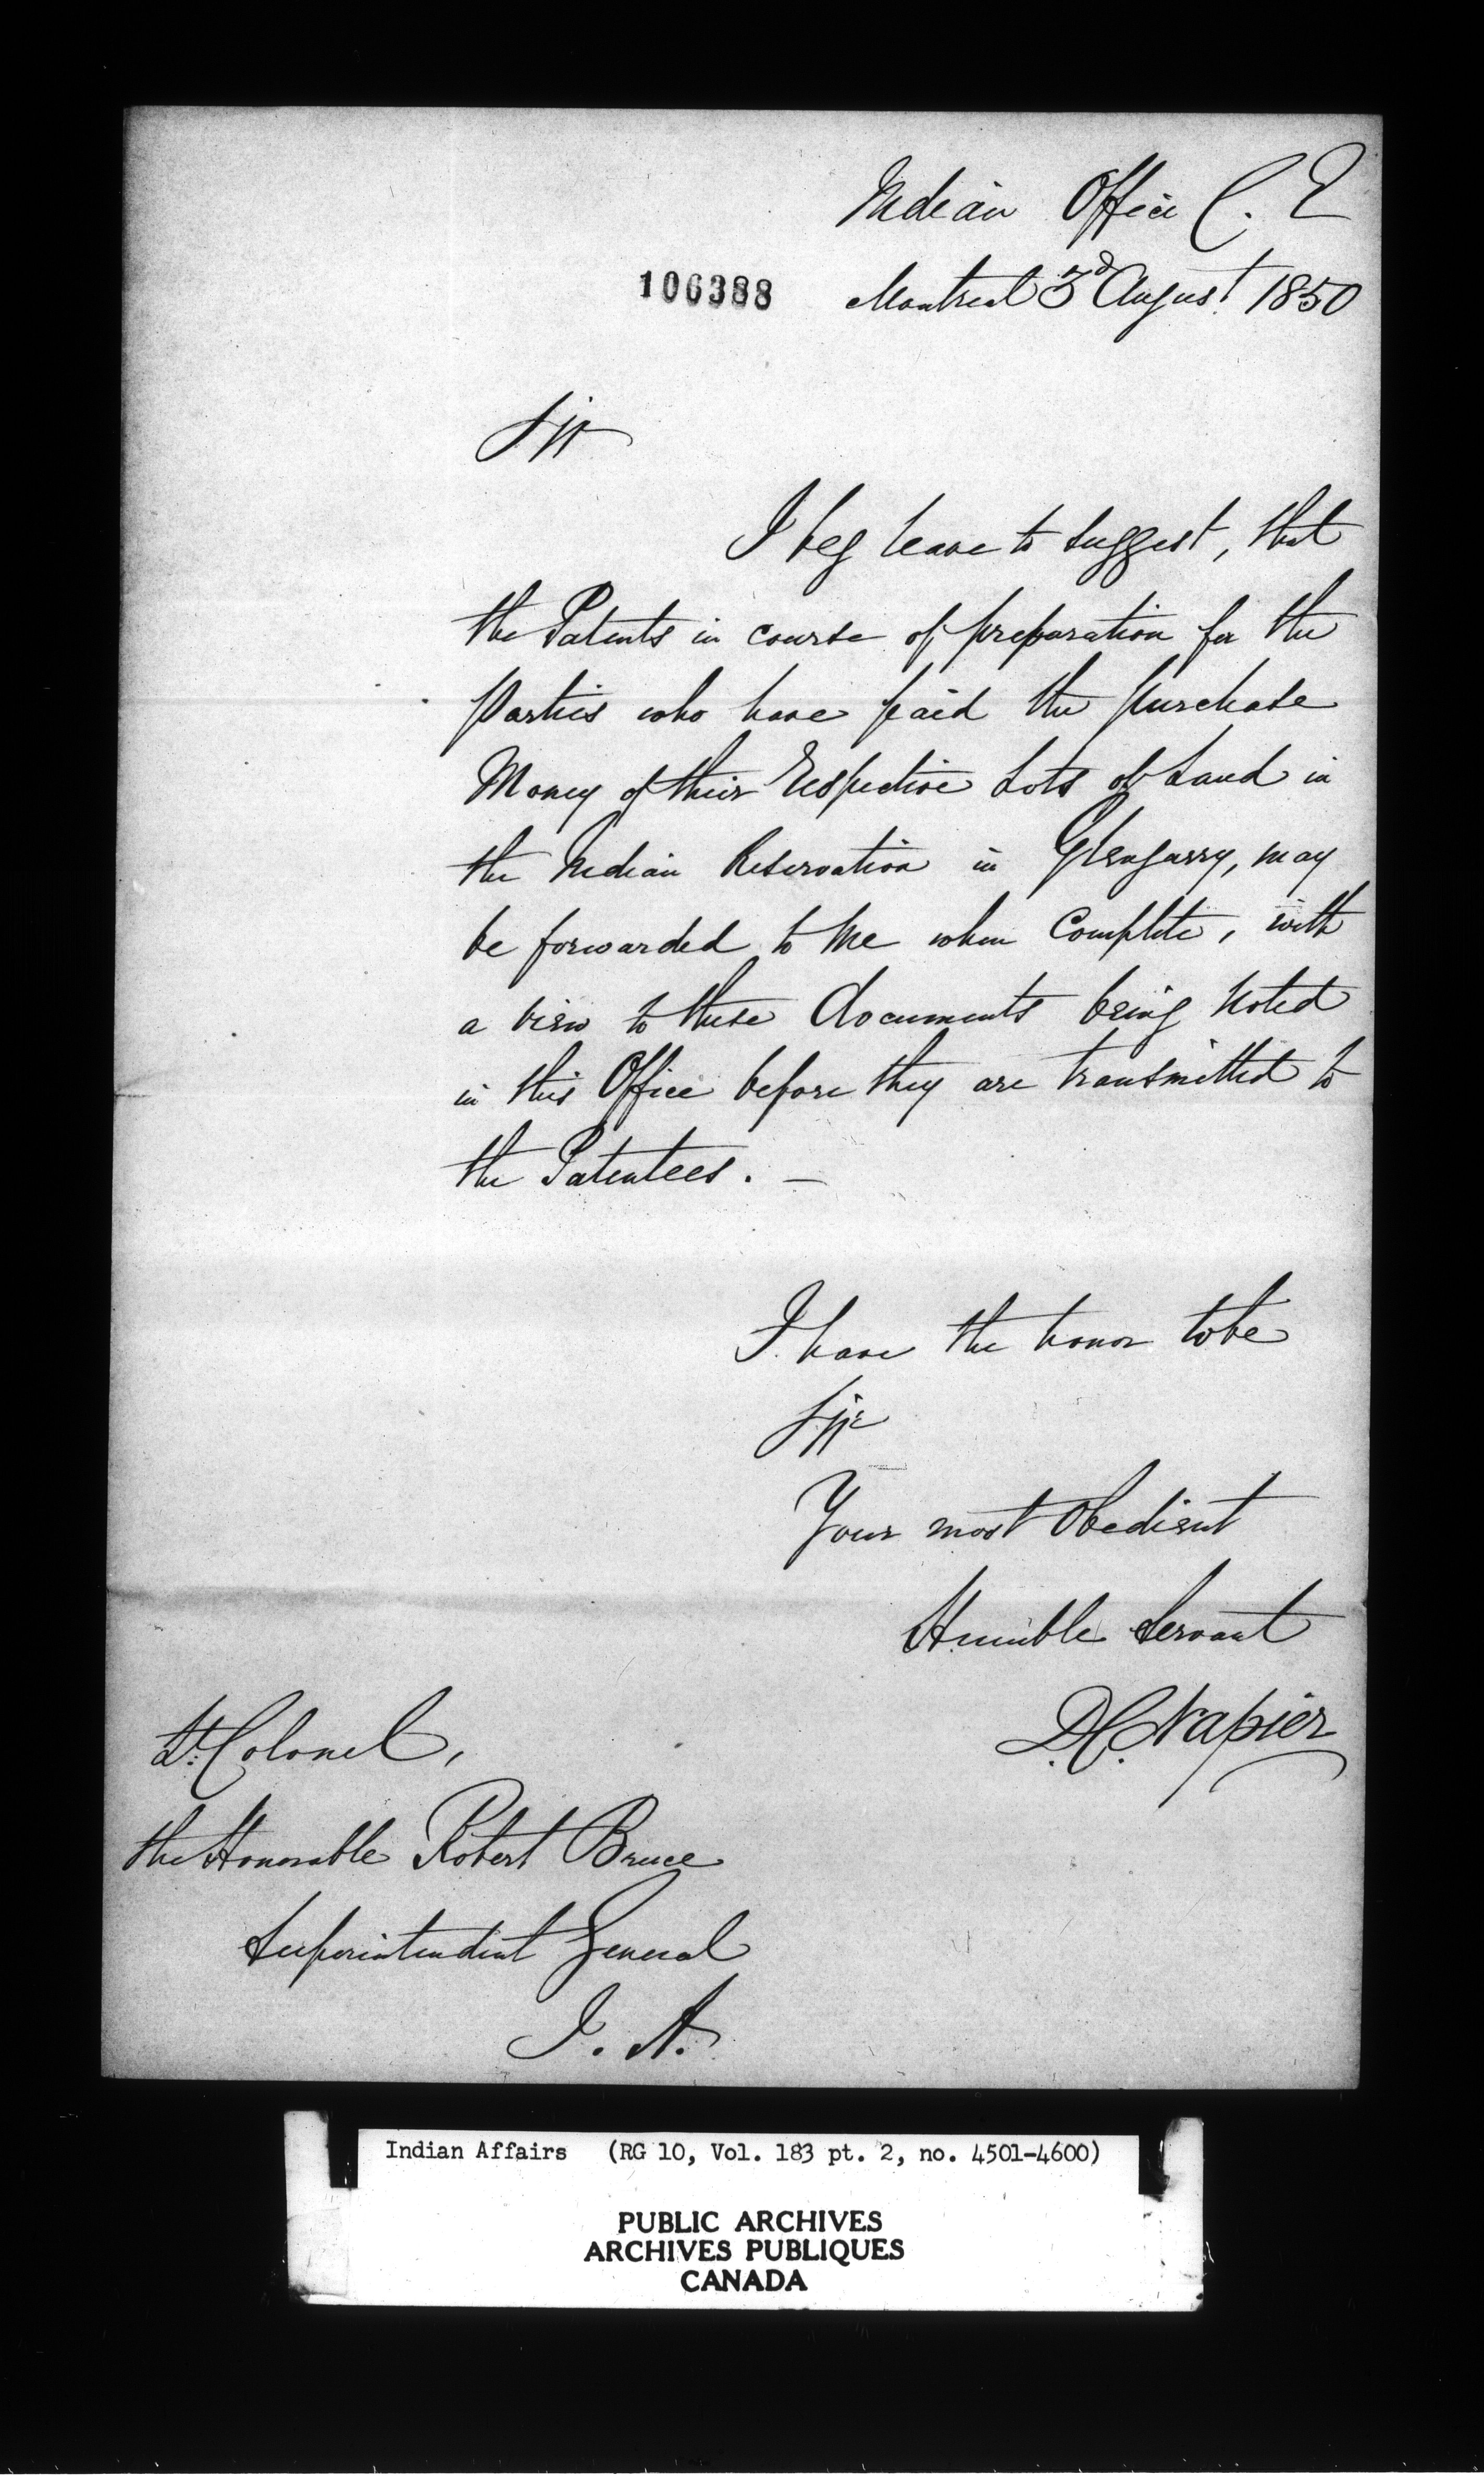 Indian Office C. E
106388
Montreal 3d August 1850
Sir
I beg leave to suggest, that
the Patents in course of preparation for the
Parties who have paid the purchase
Money of their Respective Lots of Land in
the Indian Reservation in Glengarry, may
be forwarded to me when Complete, with
a view to these documents being noted
in this Office before they are transmitted to
the Patentees. —
I have the honor to be
Sir
Your most Obedient
Humble Servant
D.C. Napier
Lt. Colonel,
the Honorable Robert Bruce
Superintendent General
I. A.
Indian Affairs (RG 10, Vol. 183 pt. 2, no. 4501-4600)
PUBLIC ARCHIVES
ARCHIVES PUBLIQUES
CANADA